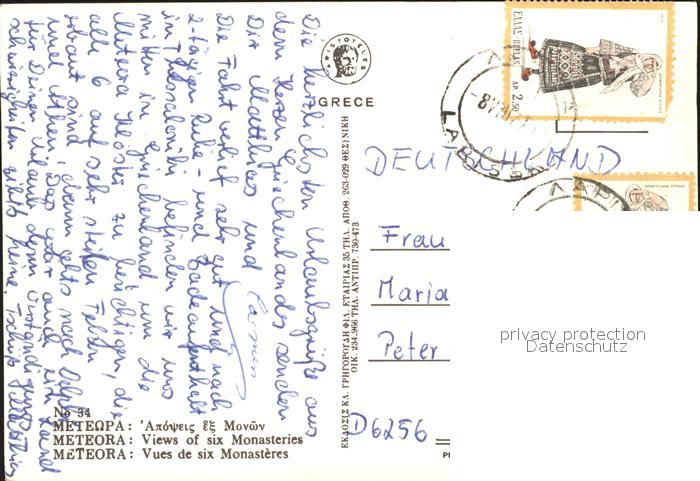 Die herzlichsten Urlaubsgrüße aus
dem Herzen Griechenlands senden
Dir Matthias und
Die Fahrt verlief sehr gut und nach
2-tägigen Ruhe- und Badeaufenthalt
in Thessaloniki befinden wir uns
mitten in Griechenland um die
Meteora Klöster zu besichtigen, die
alle 6 auf sehr steilen Felsen
erbaut sind. Dann gehts nach Delphi
und Athen. Das wäre auch
für Deinen Urlaub denn
schwierigkeiten gibts keine. Tschüß
ARISTOTELES
GREECE
ΕΛΛΑΣ-HELLAS
ΔΡ. 2.50
ΛΑΡΙ
DEUTSCHLAND
Frau
Maria
Peter
D 6256
privacy protection
Datenschutz
ΕΚΔΟΣΙΣ ΚΛ. ΓΡΗΓΟΡΟΥΔΗ ΦΙΛ. ΕΤΑΙΡΙΑΣ 35 ΤΗΛ. ΑΠΟΘ. 263-029 ΘΕΣ/ΝΙΚΗ
ΟΙΚ. 234-966 ΤΗΛ. ΑΝΤΙΠΡ. 730-473
No 34
ΜΕΤΕΩΡΑ: Ἀπόψεις ἕξ Μονῶν
METEORA: Views of six Monasteries
METEORA: Vues de six Monastères